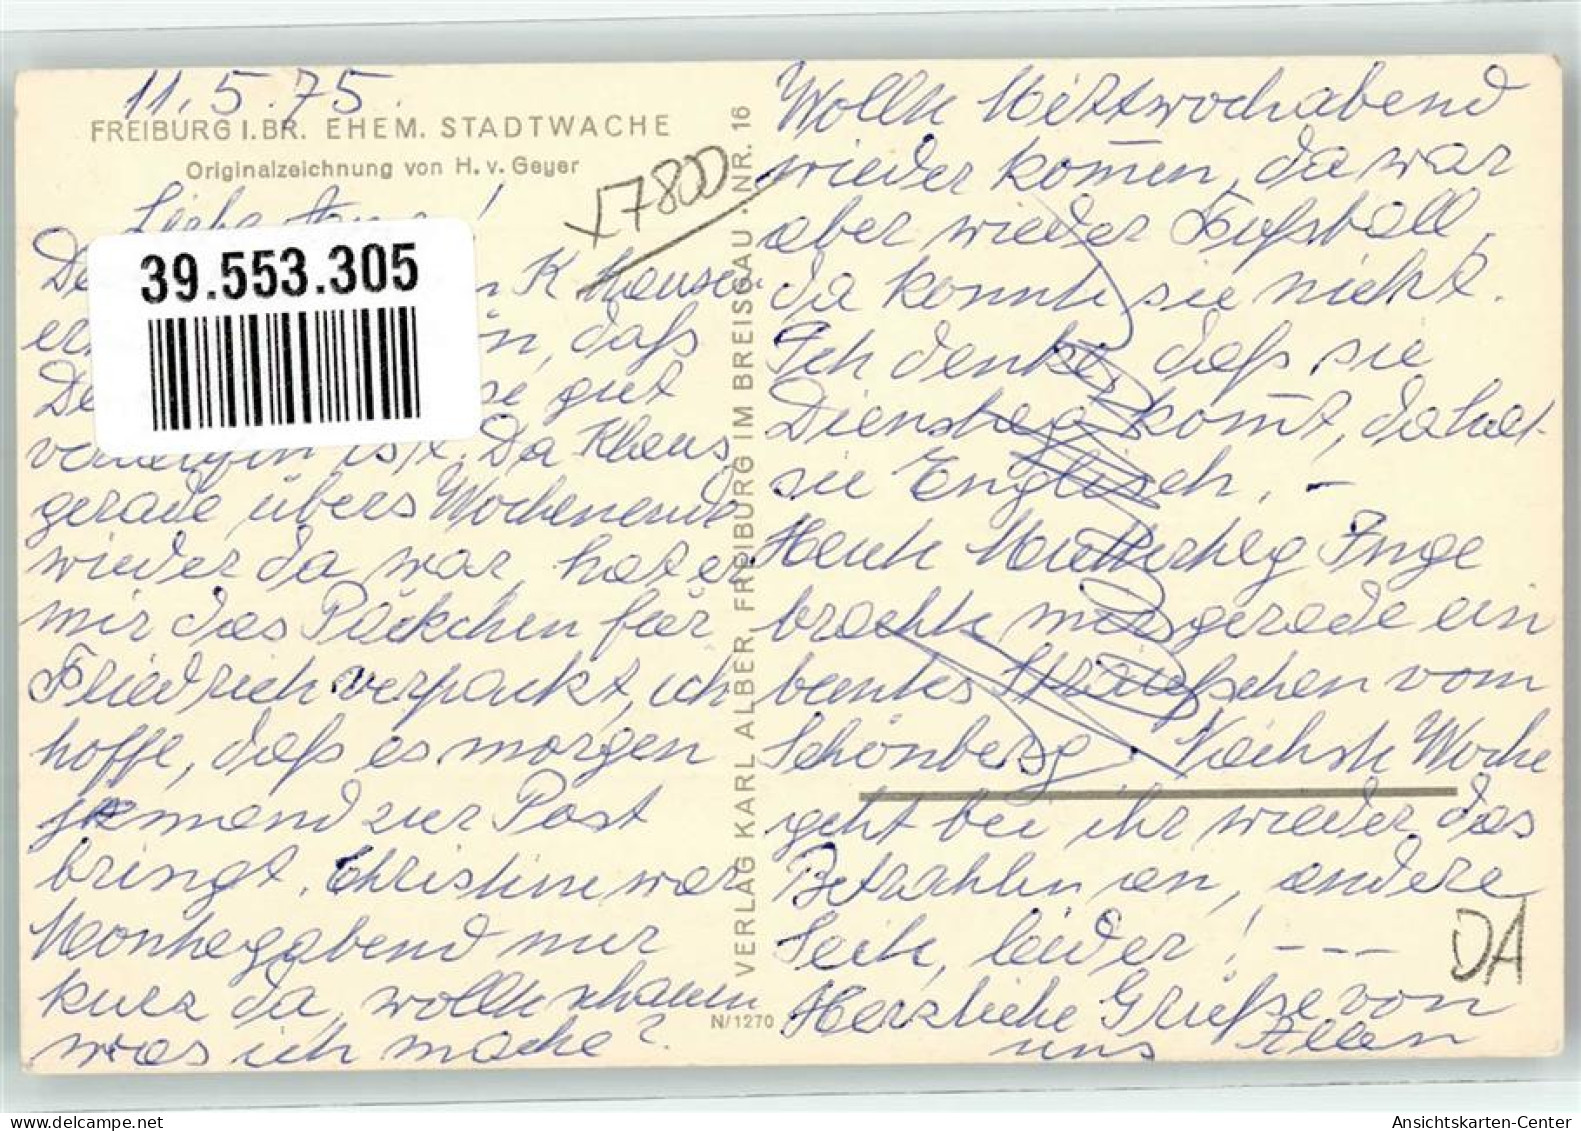 11.5.75.
FREIBURG I. BR. EHEM. STADTWACHE
Originalzeichnung von H. v. Geyer
17800
Liebe !
39.553.305
K Hause
daß
gut
ist. Da Klaus
gerade übers Wochenende
wieder da war, hat er
mir das Päckchen für
Friedrich verpackt, ich
hoffe, daß es morgen
jemand zur Post
bringt. Christine war
Montagabend nur
kurz da, wollte schauen
was ich mache?
VERLAG KARL ALBER, FREIBURG IM BREISGAU · NR. 16
N/1270
Wollte Mittwochabend
wieder kom̄en, da war
aber wieder Fußball,
da konnte sie nicht.
Ich denke, daß sie
Dienstag kom̄t, da hat
sie Englisch. –
Heute Muttertag Inge
brachte mir gerade ein
buntes Sträußchen vom
Schönberg. Nächste Woche
geht bei ihr wieder das
Bestrahlen an, andere
Seite, leider! ---
DA
Herzliche Grüße von
uns Allen
Ansichtskarten-Center
delcampe.net